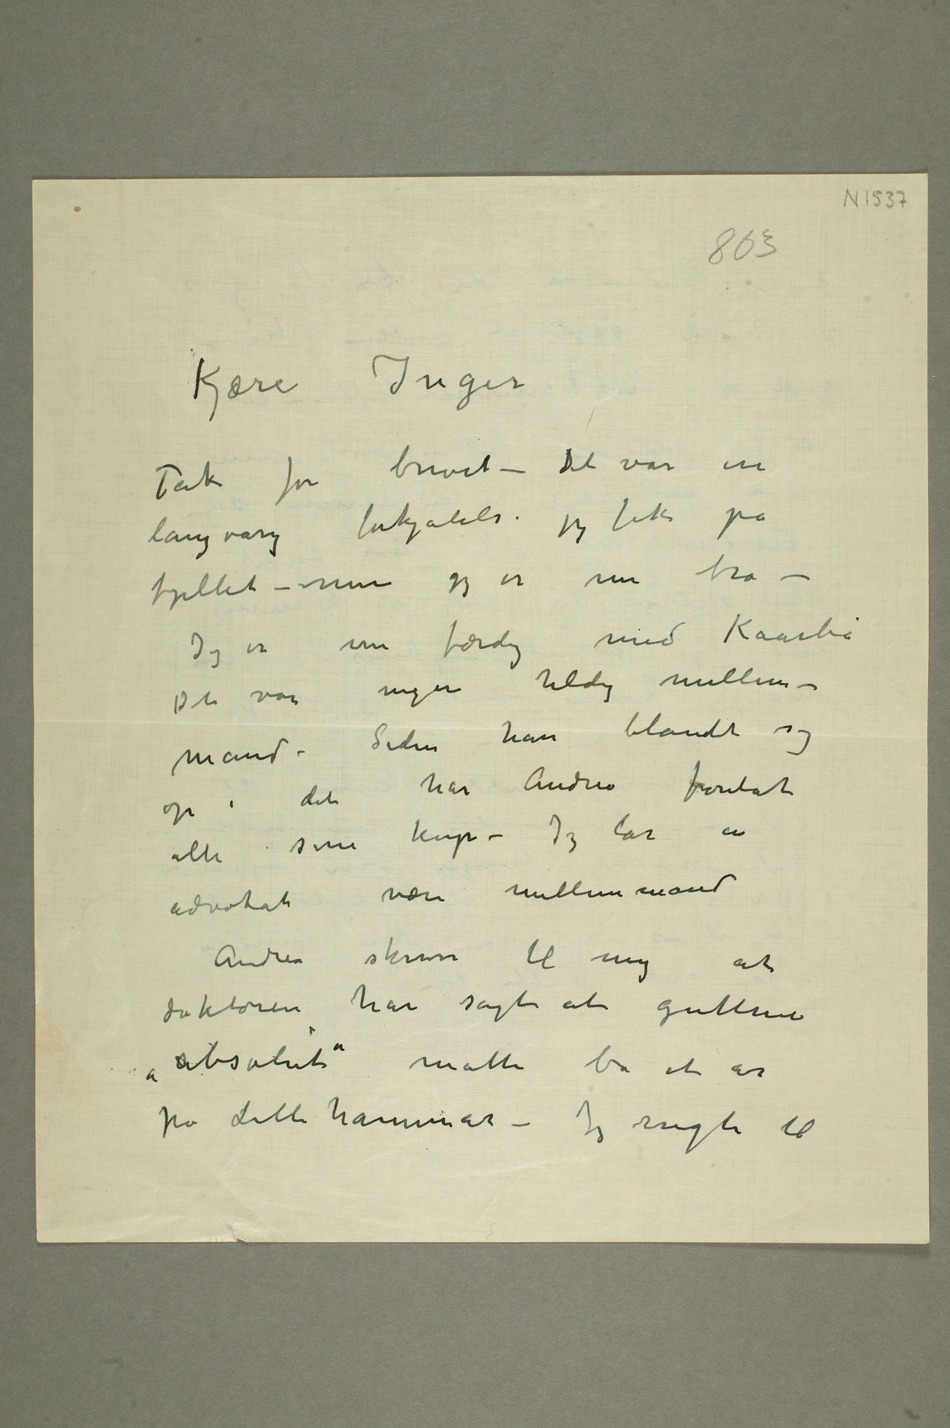 N 1537
863
Kjære Inger
Tak for brevet – Det var en
langvarig forkjølelse jeg fik på
fjellet – men jeg er nu bra –
Jeg er nu færdig med Kaarbø
Det var ingen heldig mellem-
mand – Siden han blandt sig
op i det har Andrea foretat
alle sine knep – Jeg lar en
advokat være mellemmand
Andrea skriver til mig at
doktoren har sagt at guttene
„absolut" måtte bo et år
på Lillehammer – Jeg ringte til